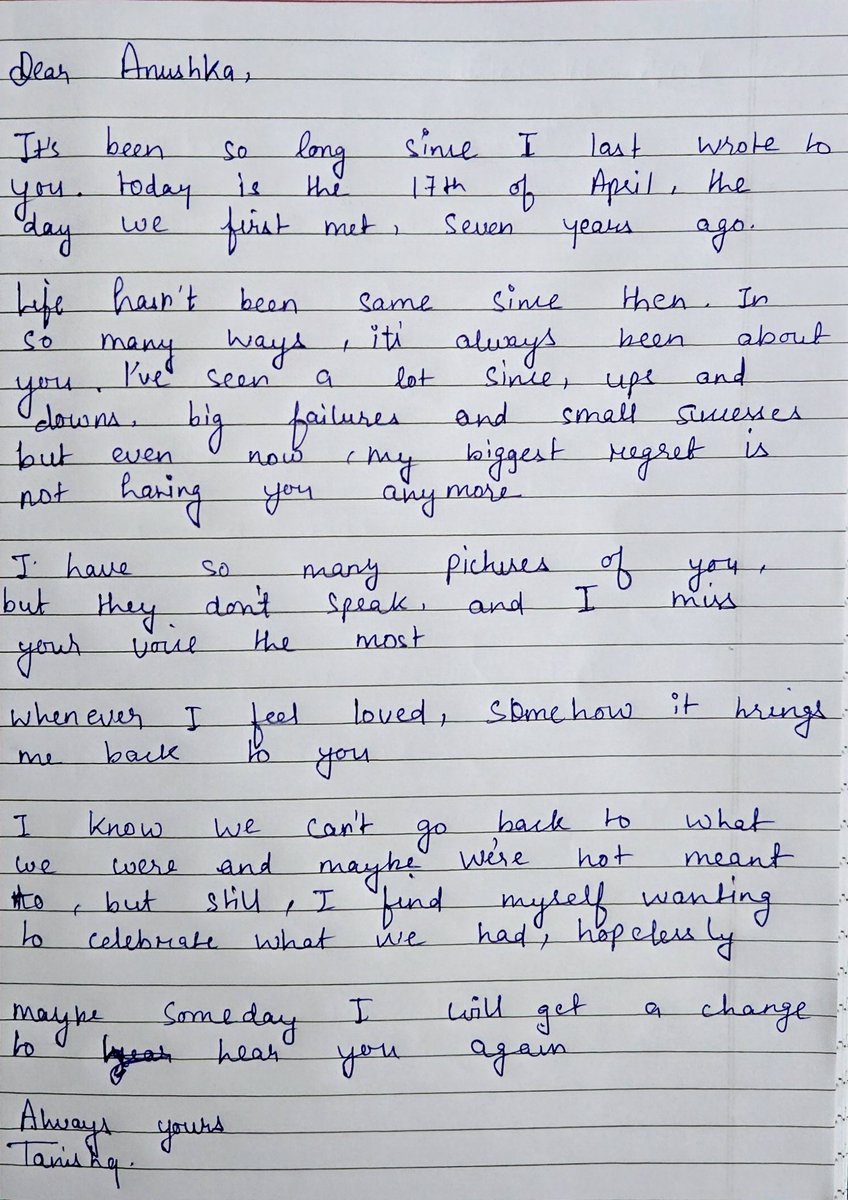 Dear Anushka,
It's been so long since I last wrote to
you. today is the 17th of April, the
day we first met, seven years ago.
Life hasn't been same since then. In
so many ways, it's always been about
you. I've seen a lot since, ups and
downs, big failures and small successes
but even now, my biggest regret is
not having you anymore
I have so many pictures of you,
but they don't speak, and I miss
your voice the most
whenever I feel loved, somehow it brings
me back to you
I know we can't go back to what
we were and maybe we're not meant
to, but still, I find myself wanting
to celebrate what we had, hopelessly
maybe someday I will get a change
to hear you again
Always yours
Tanishq.